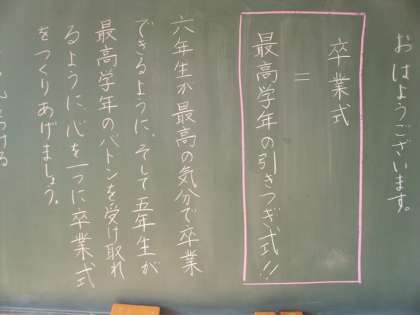 おはようございます。
卒業式
=
最高学年の引きつぎ式!!
六年生が最高の気分で卒業
できるように、そして五年生が
最高学年のバトンを受け取れ
るように、心を一つに卒業式
をつくりあげましょう。